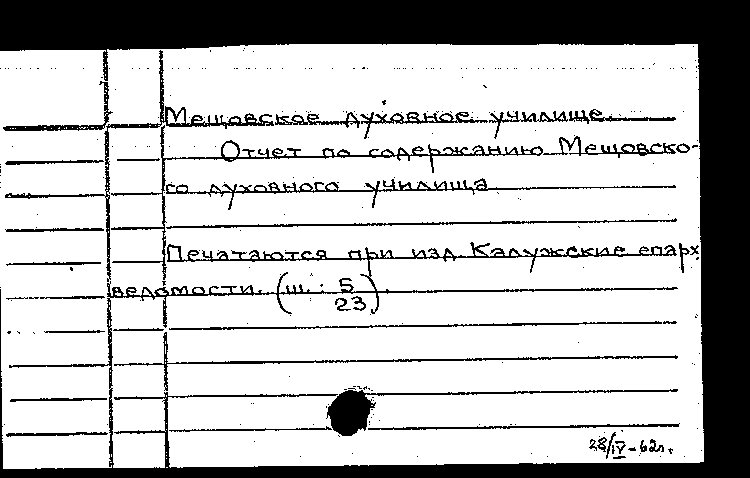 Мещовское духовное училище.
Отчет по содержанию Мещовско-
го духовного училища
Печатаются при изд. Калужские епарх
ведомости. (ш. : 5
23).
28/IV-62г.